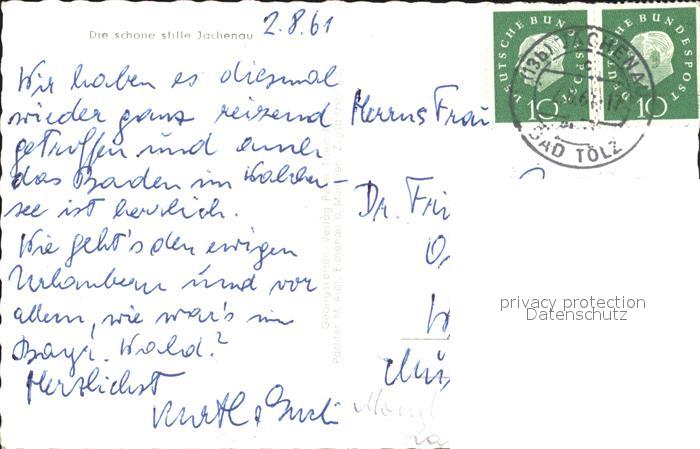 Die schöne stille Jachenau
2.8.61
Wir haben es diesmal
wieder ganz reizend
getroffen und auch
das Baden im Walchen-
see ist herrlich.
Wie geht's den ewigen
Urlaubern und vor
allem, wie war's im
Bayr. Wald?
Herzlichst
Herrn u Frau
Dr. Fri
DEUTSCHE BUNDESPOST
10
DEUTSCHE BUNDESPOST
10
(13b) JACHENAU
BAD TÖLZ
privacy protection
Datenschutz